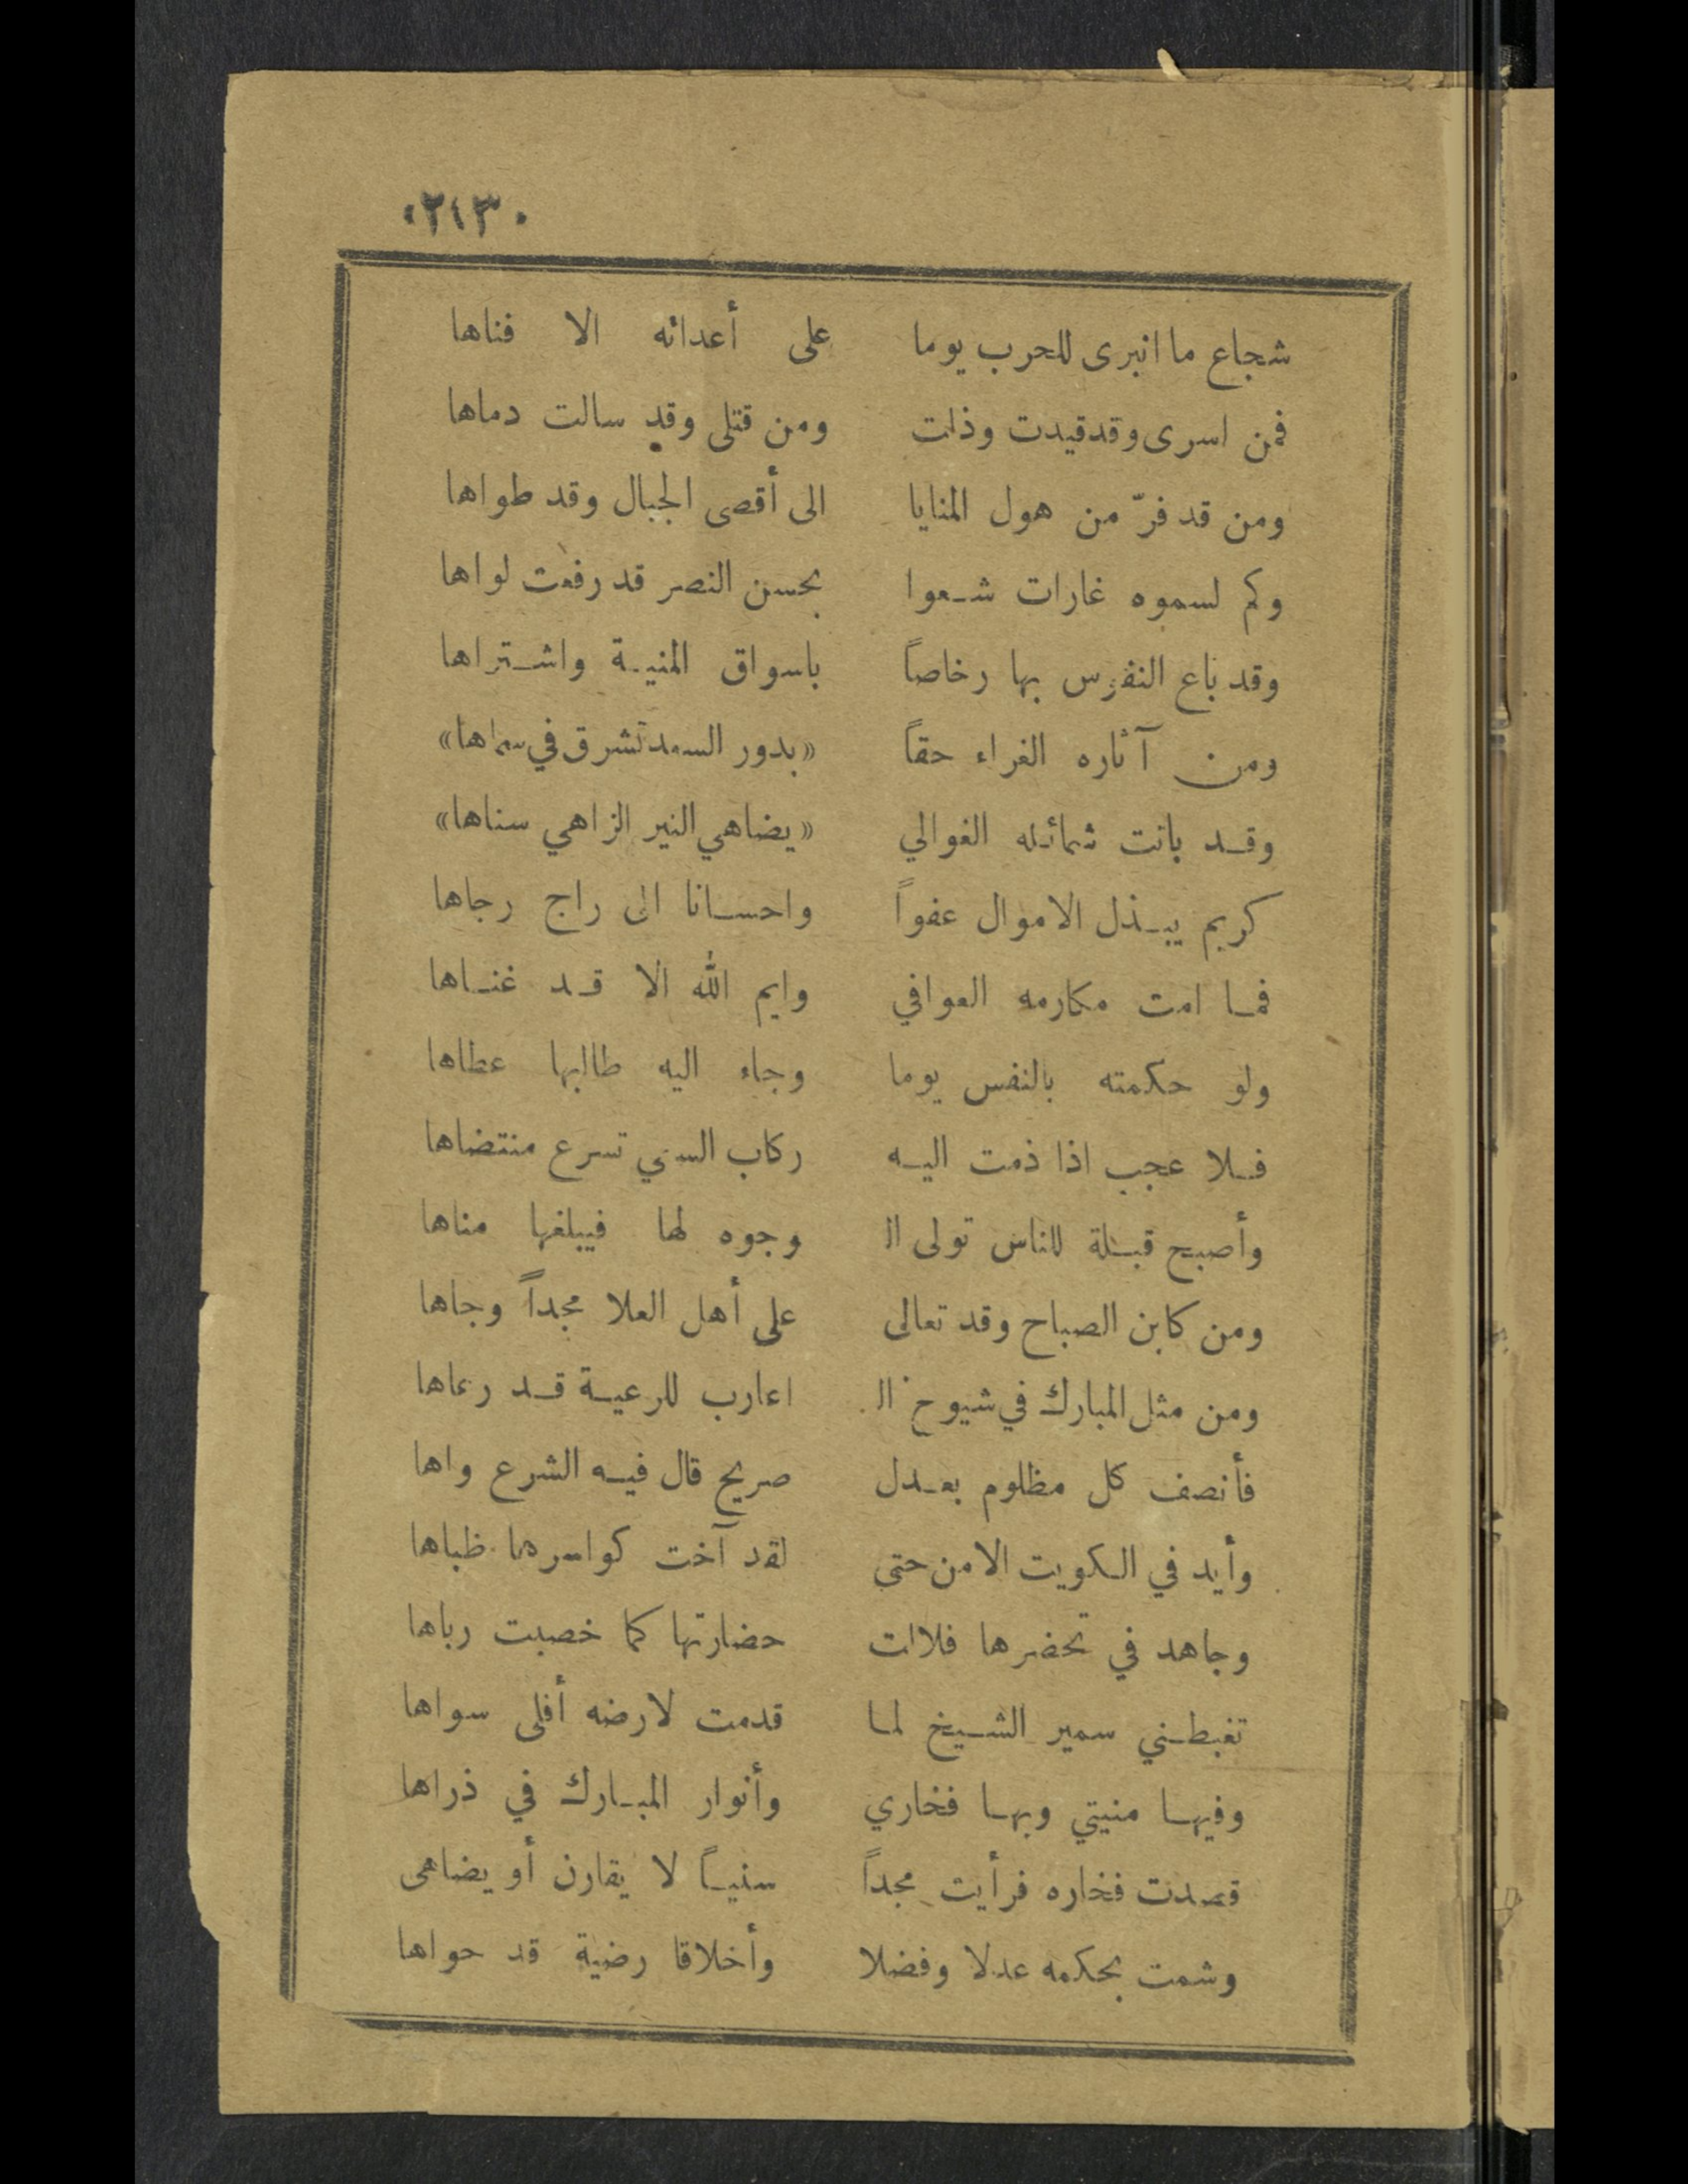 ٠٢١٣٠
شجاع ما انبرى للحرب يوما على أعدائه الا فناها
فمن اسرى وقد قيدت وذلت ومن قتلى وقد سالت دماها
ومن قد فرّ من هول المنايا الى أقصى الجبال وقد طواها
وكم لسموه غارات شعوا بحسن النصر قد رفعت لواها
وقد باع النفوس بها رخاصاً باسواق المنية واشتراها
ومن آثاره الغراء حقاً «بدور السعد تشرق في سماها»
وقد بانت شمائله الغوالي «يضاهي النير الزاهي سناها»
كريم يبذل الاموال عفواً واحسانا الى راج رجاها
فما امت مكارمه العوافي وايم الله الا قد غناها
ولو حكمته بالنفس يوما وجاء اليه طالبها عطاها
فلا عجب اذا ذمت اليه ركاب السعي تسرع منتضاها
وأصبح قبلة للناس تولى الـ وجوه لها فيبلغها مناها
ومن كابن الصباح وقد تعالى على أهل العلا مجداً وجاها
ومن مثل المبارك في شيوخ الـ اعارب للرعية قد رعاها
فأنصف كل مظلوم بعدل صريح قال فيه الشرع واها
وأيد في الكويت الامن حتى لقد آخت كواسرها ظباها
وجاهد في تحضرها فلاات حضارتها كما خصبت رباها
تغبطني سمير الشيخ لما قدمت لارضه أفلى سواها
وفيها منيتي وبها فخاري وأنوار المبارك في ذراها
قصدت فخاره فرأيت مجداً سنياً لا يقارن أو يضاهى
وشمت بحكمه عدلا وفضلا وأخلاقا رضية قد حواها